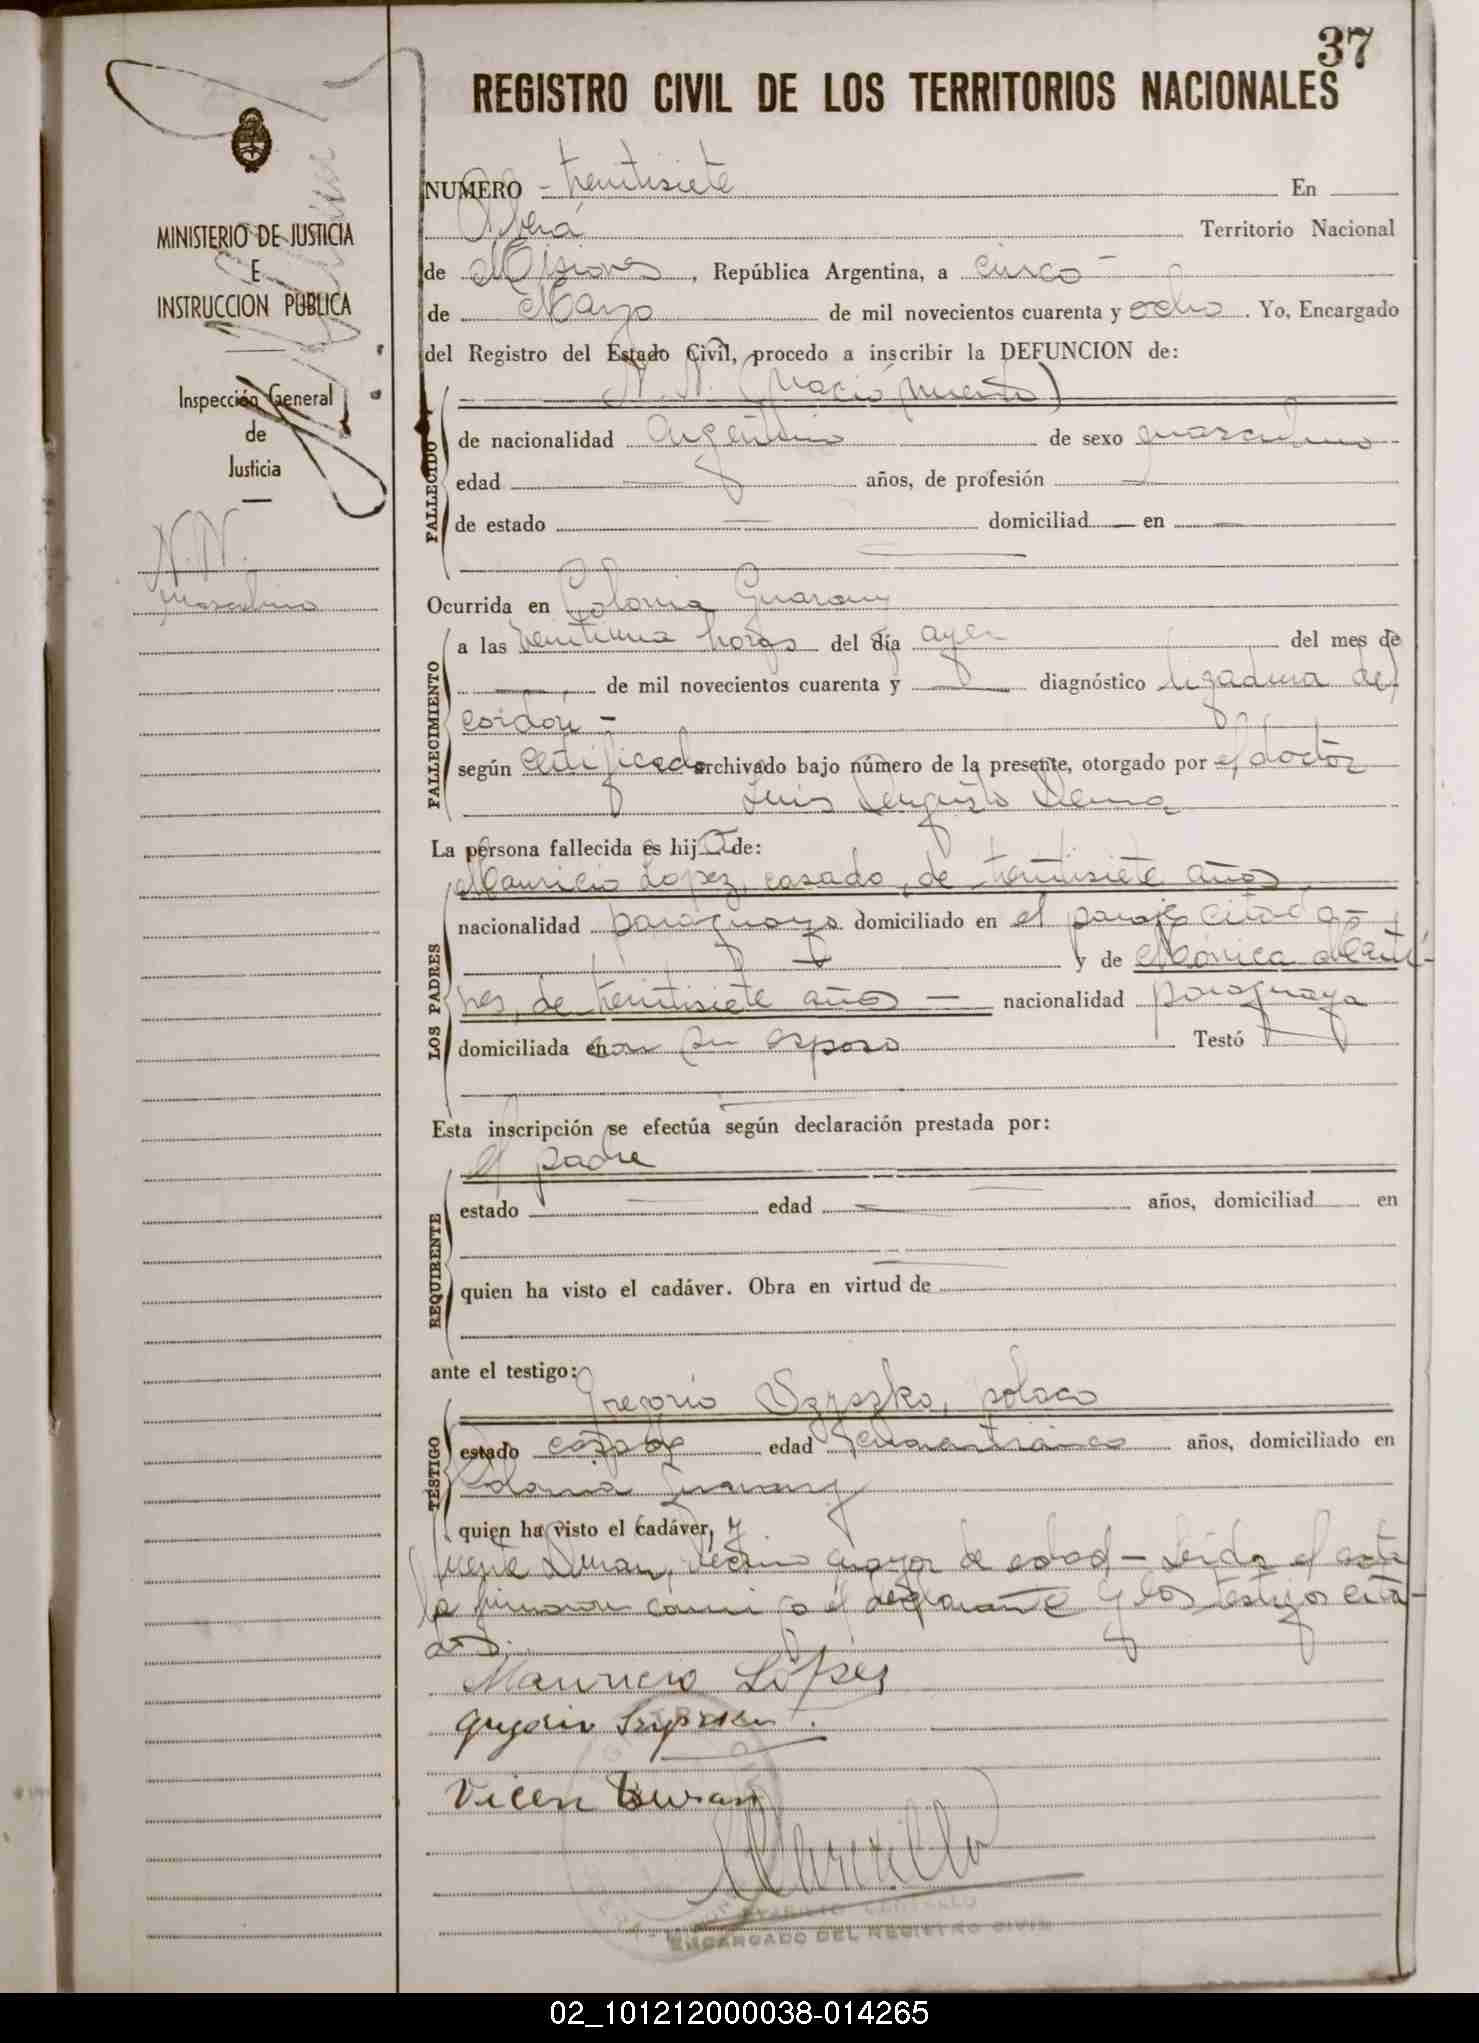 37
REGISTRO CIVIL DE LOS TERRITORIOS NACIONALES
MINISTERIO DE JUSTICIA
E
INSTRUCCION PUBLICA
Inspección General
de
Justicia
N. N.
masculino
NUMERO - treintisiete En
Oberá Territorio Nacional
de Misiones, República Argentina, a cinco -
de Mayo de mil novecientos cuarenta y ocho. Yo, Encargado
del Registro del Estado Civil, procedo a inscribir la DEFUNCION de:
N. N. (Nació muerto)
FALLECIDO
de nacionalidad Argentino de sexo masculino
edad — años, de profesión —
de estado — domiciliad — en —
Ocurrida en Colonia Guarany
FALLECIMIENTO
a las veintiuna horas del día ayer del mes de
— de mil novecientos cuarenta y — diagnóstico ligadura del
cordón -
según certificado archivado bajo número de la presente, otorgado por el doctor
Luis Augusto
La persona fallecida es hijo de:
LOS PADRES
Mauricio Lopez, casado, de treintisiete años
nacionalidad paraguayo domiciliado en el paraje citado -
y de Mónica Martí-
nes, de treintisiete años — nacionalidad paraguaya
domiciliada en con su esposo Testó
Esta inscripción se efectúa según declaración prestada por:
REQUIRENTE
el padre
estado — edad — años, domiciliad en
quien ha visto el cadáver. Obra en virtud de
ante el testigo:
TESTIGO
Gregorio Szyszko, polaco
estado casado edad cuarenticinco años, domiciliado en
Colonia Guarany
quien ha visto el cadáver, y
Duran, vecino mayor de edad - Leída el acta
la firmaron conmigo el declarante y los testigos cita-
dos.
Mauricio Lópes
Gregorio
Vicen Duran
CARRILLO
ENCARGADO DEL REGISTRO CIVIL
02_101212000038-014265